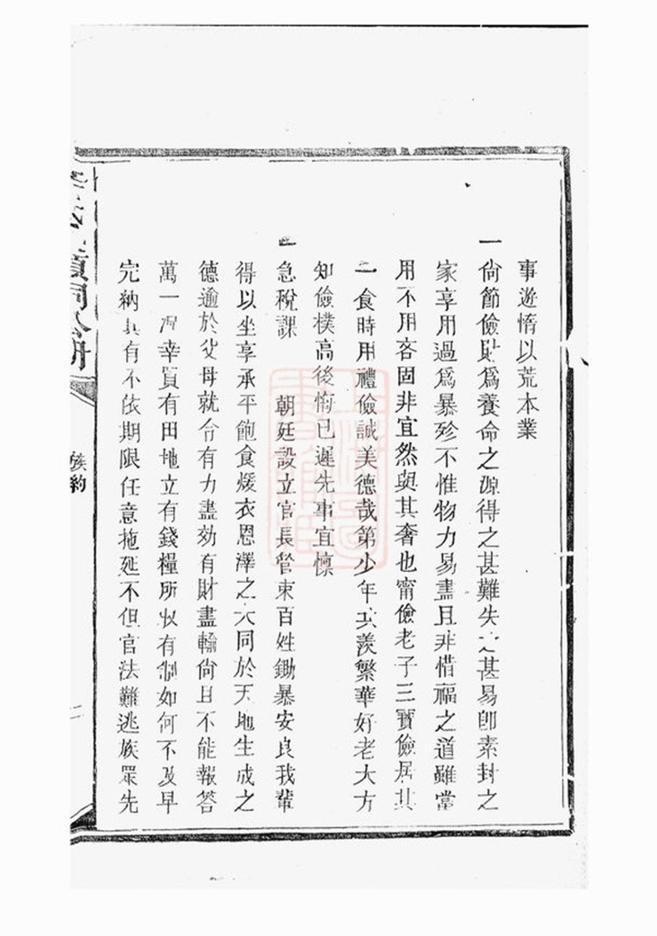 事遊惰以荒本業
一尙節儉財爲養命之源得之甚難失之甚易卽素封之
家享用過爲暴殄不惟物力易盡且非惜福之道雖當
用不用吝固非宜然與其奢也甯儉老子三寶儉居其
一食時用禮儉誠美德哉第少年羨繁華好老大方
知儉樸高後悔已遲先事宜懍
一急稅課 朝廷設立官長管束百姓鋤暴安良我輩
得以坐享承平飽食煖衣恩澤之大同於天地生成之
德逾於父母就令有力盡効有財盡輸尙且不能報答
萬一况幸賈有田地立有錢糧所收有制如何不及早
完納其有不依期限任意拖延不但官法難逃族眾先
族約
二